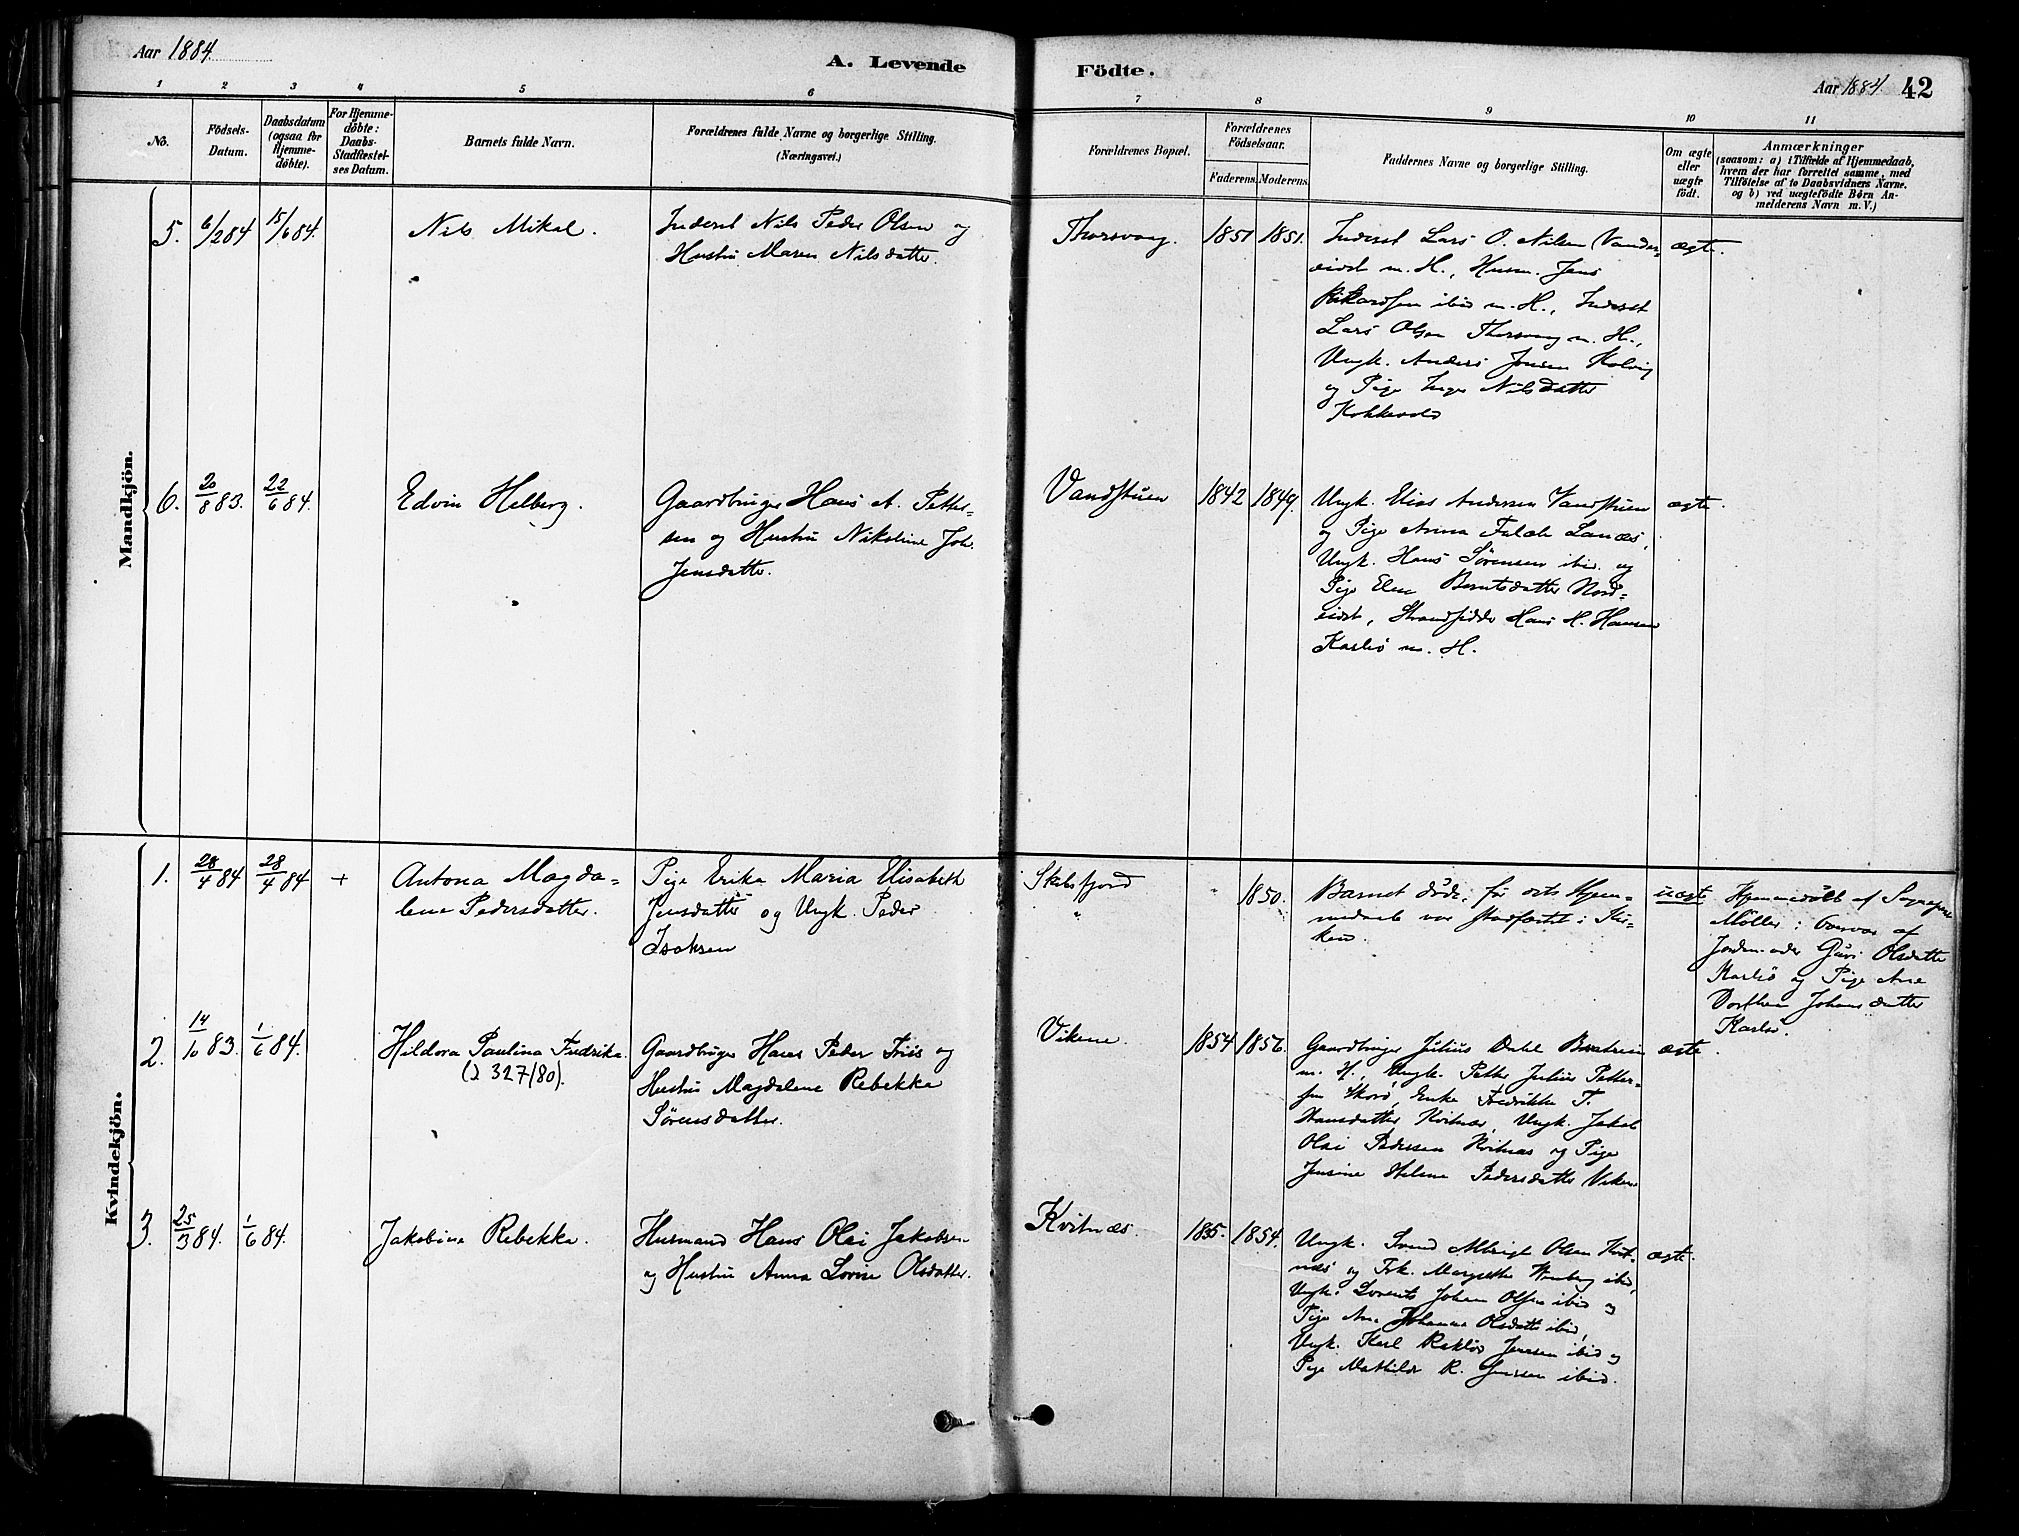 Aar 1884.
A. Levende
Födte.
Aar 1884. 42
1 2 3 4 5 6 7 8 9 10 11
No.
Födsels-
Datum.
Daabsdatum
(ogsaa for
Hjemme-
döbte).
For Hjemme-
döbte:
Daabs-
Stadfæstel-
ses Datum.
Barnets fulde Navn.
Forældrenes fulde Navne og borgerlige Stilling.
(Næringsvei.)
Forældrenes Bopæl.
Forældrenes
Födselsaar.
Faderens. Moderens.
Faddernes Navne og borgerlige Stilling.
Om ægte
eller
uægte
födt.
Anmærkninger
(saasom: a) i Tilfælde af Hjemmedaab,
hvem der har forrettet samme, med
Tilföielse af to Daabsvidners Navne.
og b) ved uægtefödte Börn An-
melderens Navn m. V.)
Mandkjön.
5.
6/2 84
15/6 84.
Nils Mikal.
Inderst Nils Peder Olsen og
Hustru Maren Nilsdatter.
Thorsvaag.
1851
1851.
Inderst Lars O. Nilsen Vander-
eidet m. H., Husm. Jens
Rikardsen ibid m. H., Inderst
Lars Olsen Thorsvaag m. H.,
Ungk. Anders Jensen
og Pige Inger Nilsdatter
ægt.
6.
20/8 83.
22/6 84.
Edvin Helberg.
Gaardbruger Hans A. Petter-
sen og Hustru Nikoline Joh.
Jensdatter.
Vandstuen
1842
1849.
Ungk. Elias Andersen Vandstuen
og Pige Anna Falch Lanæs,
Ungk. Hans Sørensen ibid. og
Pige Elen Berntsdatter Nord-
eidet, Strandsidder Hans H. Hansen
Karlsö m. H.
ægte.
Kvindekjön.
1.
28/4 84
28/4 84
+
Antona Magda-
lena Pedersdatter.
Pige Erika Maria Elisabeth
Jensdatter og Ungk. Peder
Isaksen
Skalsfjord
"
"
1850.
Barnet døde, før dets Hjem-
medaab var stadfæstet i Kir-
ken.
uægte
Hjemmedøbt af Sognepr.
Møller i Overvær af
Jordemoder Guri Olsdatter
Karlsö og Pige Ane
Dorthea Johansdatter
Karlsö.
2.
14/10 83.
1/6 84.
Hildora Paulina Fredrika.
(J 327/80).
Gaardbruger Hans Peder Friis og
Hustru Magdalene Rebekka
Sørensdatter.
Vikene.
1854
1856.
Gaardbruger Julius Dahl
m. H., Ungk. Petter Julius Petter-
sen Skorö, Enke Fredrikke T.
Hansdatter Kvitnæs, Ungk. Jakob
Olai Pedersen Kvitnæs og Pige
Jensine Helene Pedersdatter Viken
ægte.
3.
25/3 84.
1/6 84.
Jakobine Rebekka.
Husmand Hans Olai Jakobsen
og Hustru Anna Lovise Olsdatter.
Kvitnæs.
1855.
1854.
Ungk. Svend Albrigt Olsen Kvit-
næs og Frk. Margrethe ibid,
Ungk. Lorents Johan Olsen ibid og
Pige Ane Johanna Olsdatter ibid,
Ungk. Karl Jensen ibid og
Pige Mathilde R. Jensen ibid.
ægte.